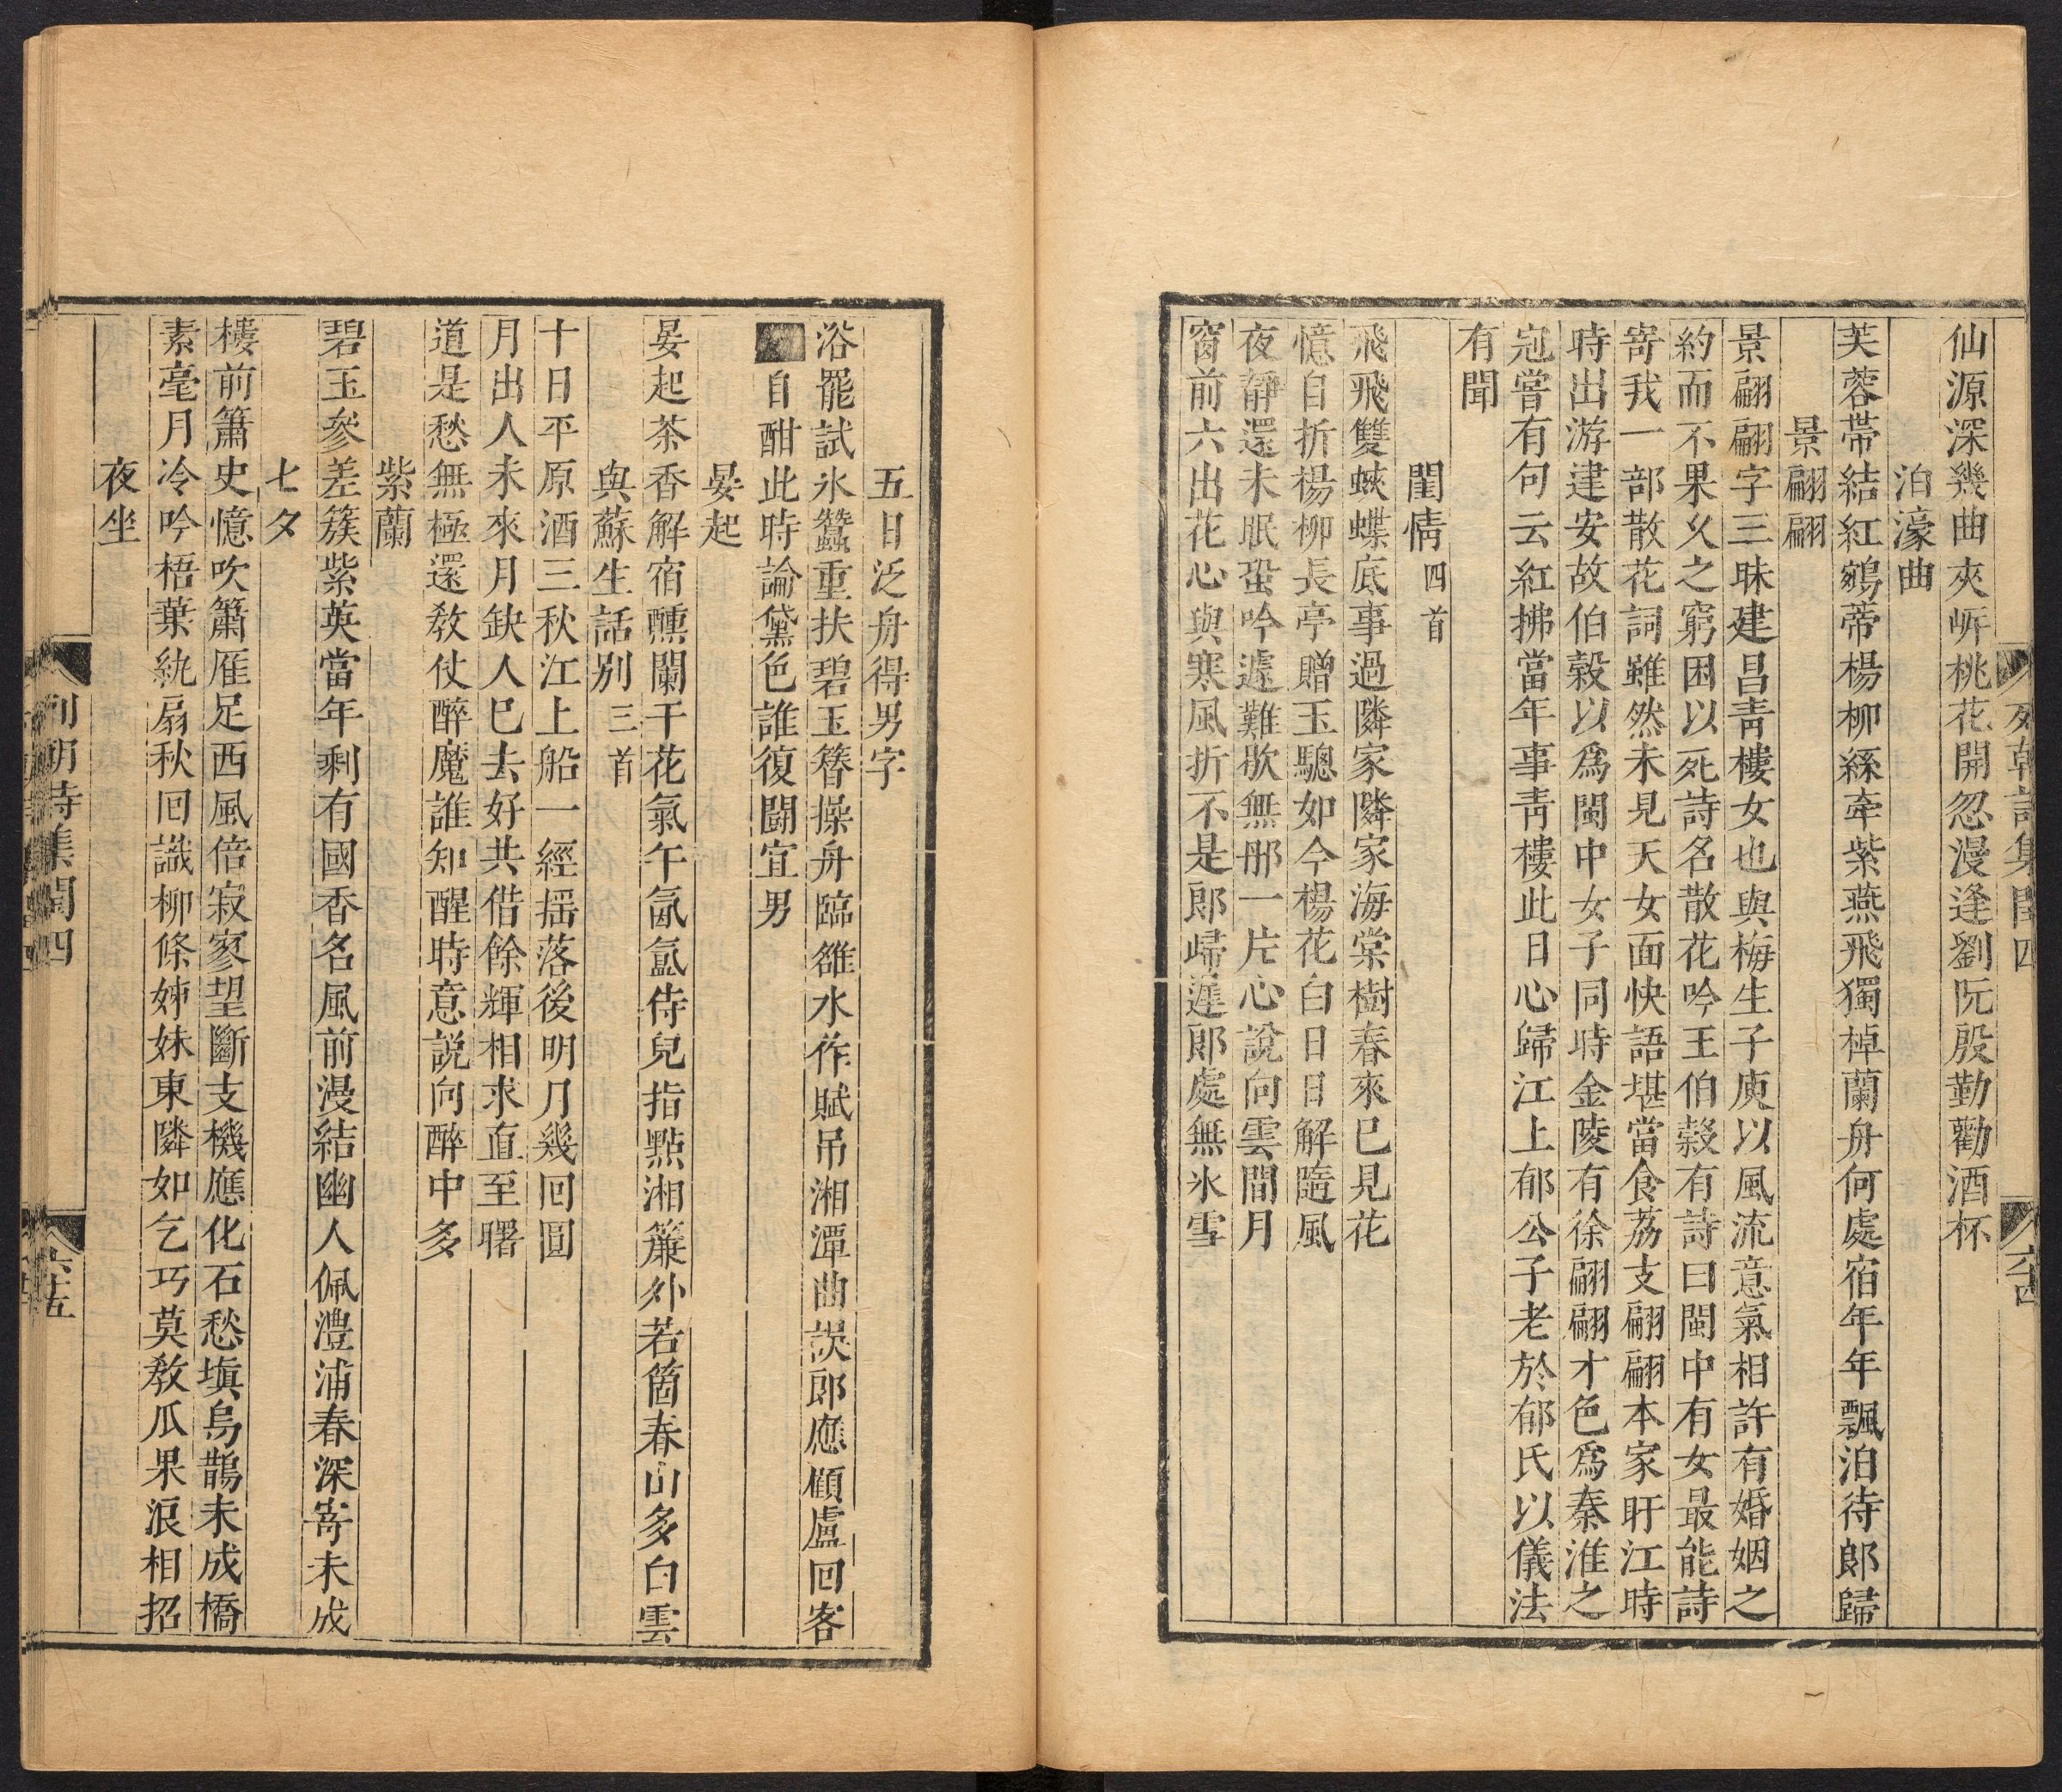 仙源深幾曲夾岍桃花開忽漫逢劉阮殷勤勸酒杯
泊濠曲
芙蓉蔕結紅鷄蒂楊柳絲牽紫燕飛獨棹蘭舟何處宿年年飄泊待郞歸
景翩翩
景翩翩字三昧建昌青樓女也與梅生子庾以風流意氣相許有婚姻之
約而不果久之窮困以死詩名散花吟王伯榖有詩曰閩中有女最能詩
寄我一部散花詞雖然未見天女面快語堪當食荔支翩翩本家盱江時
時出游建安故伯榖以爲閩中女子同時金陵有徐翩翩才色爲秦淮之
冠嘗有句云紅拂當年事青樓此日心歸江上郁公子老於郁氏以儀法
有聞
閨情四首
飛飛雙蛺蝶底事過隣家隣家海棠樹春來已見花
憶自折楊柳長亭贈玉驄如今楊花白日日解隨風
夜靜還未眠蛩吟遽難歇無那一片心說向雲間月
窗前六出花心與寒風折不是郎歸遲郎處無氷雪
五日泛舟得男字
浴罷試氷蠶重扶碧玉簪操舟臨雒水作賦吊湘潭曲誤郎應顧盧回客
自酣此時論黛色誰復鬬宜男
晏起
晏起茶香解宿醺闌干花氣午氤氳侍兒指點湘簾外若箇春山多白雲
與蘇生話别三首
十日平原酒三秋江上船一經摇落後明月幾回圓
月出人未來月缺人巳去好共借餘輝相求直至曙
道是愁無極還敎仗醉魔誰知醒時意説向醉中多
紫蘭
碧玉參差簇紫英當年剩有國香名風前漫結幽人佩澧浦春深寄未成
七夕
樓前簫史憶吹簫雁足西風倍寂寥望斷支機應化石愁塡烏鵲未成橋
素毫月冷吟梧葉紈扇秋回識柳條姊妹東隣如乞巧莫敎瓜果浪相招
夜坐
列朝詩集閏四
六十五